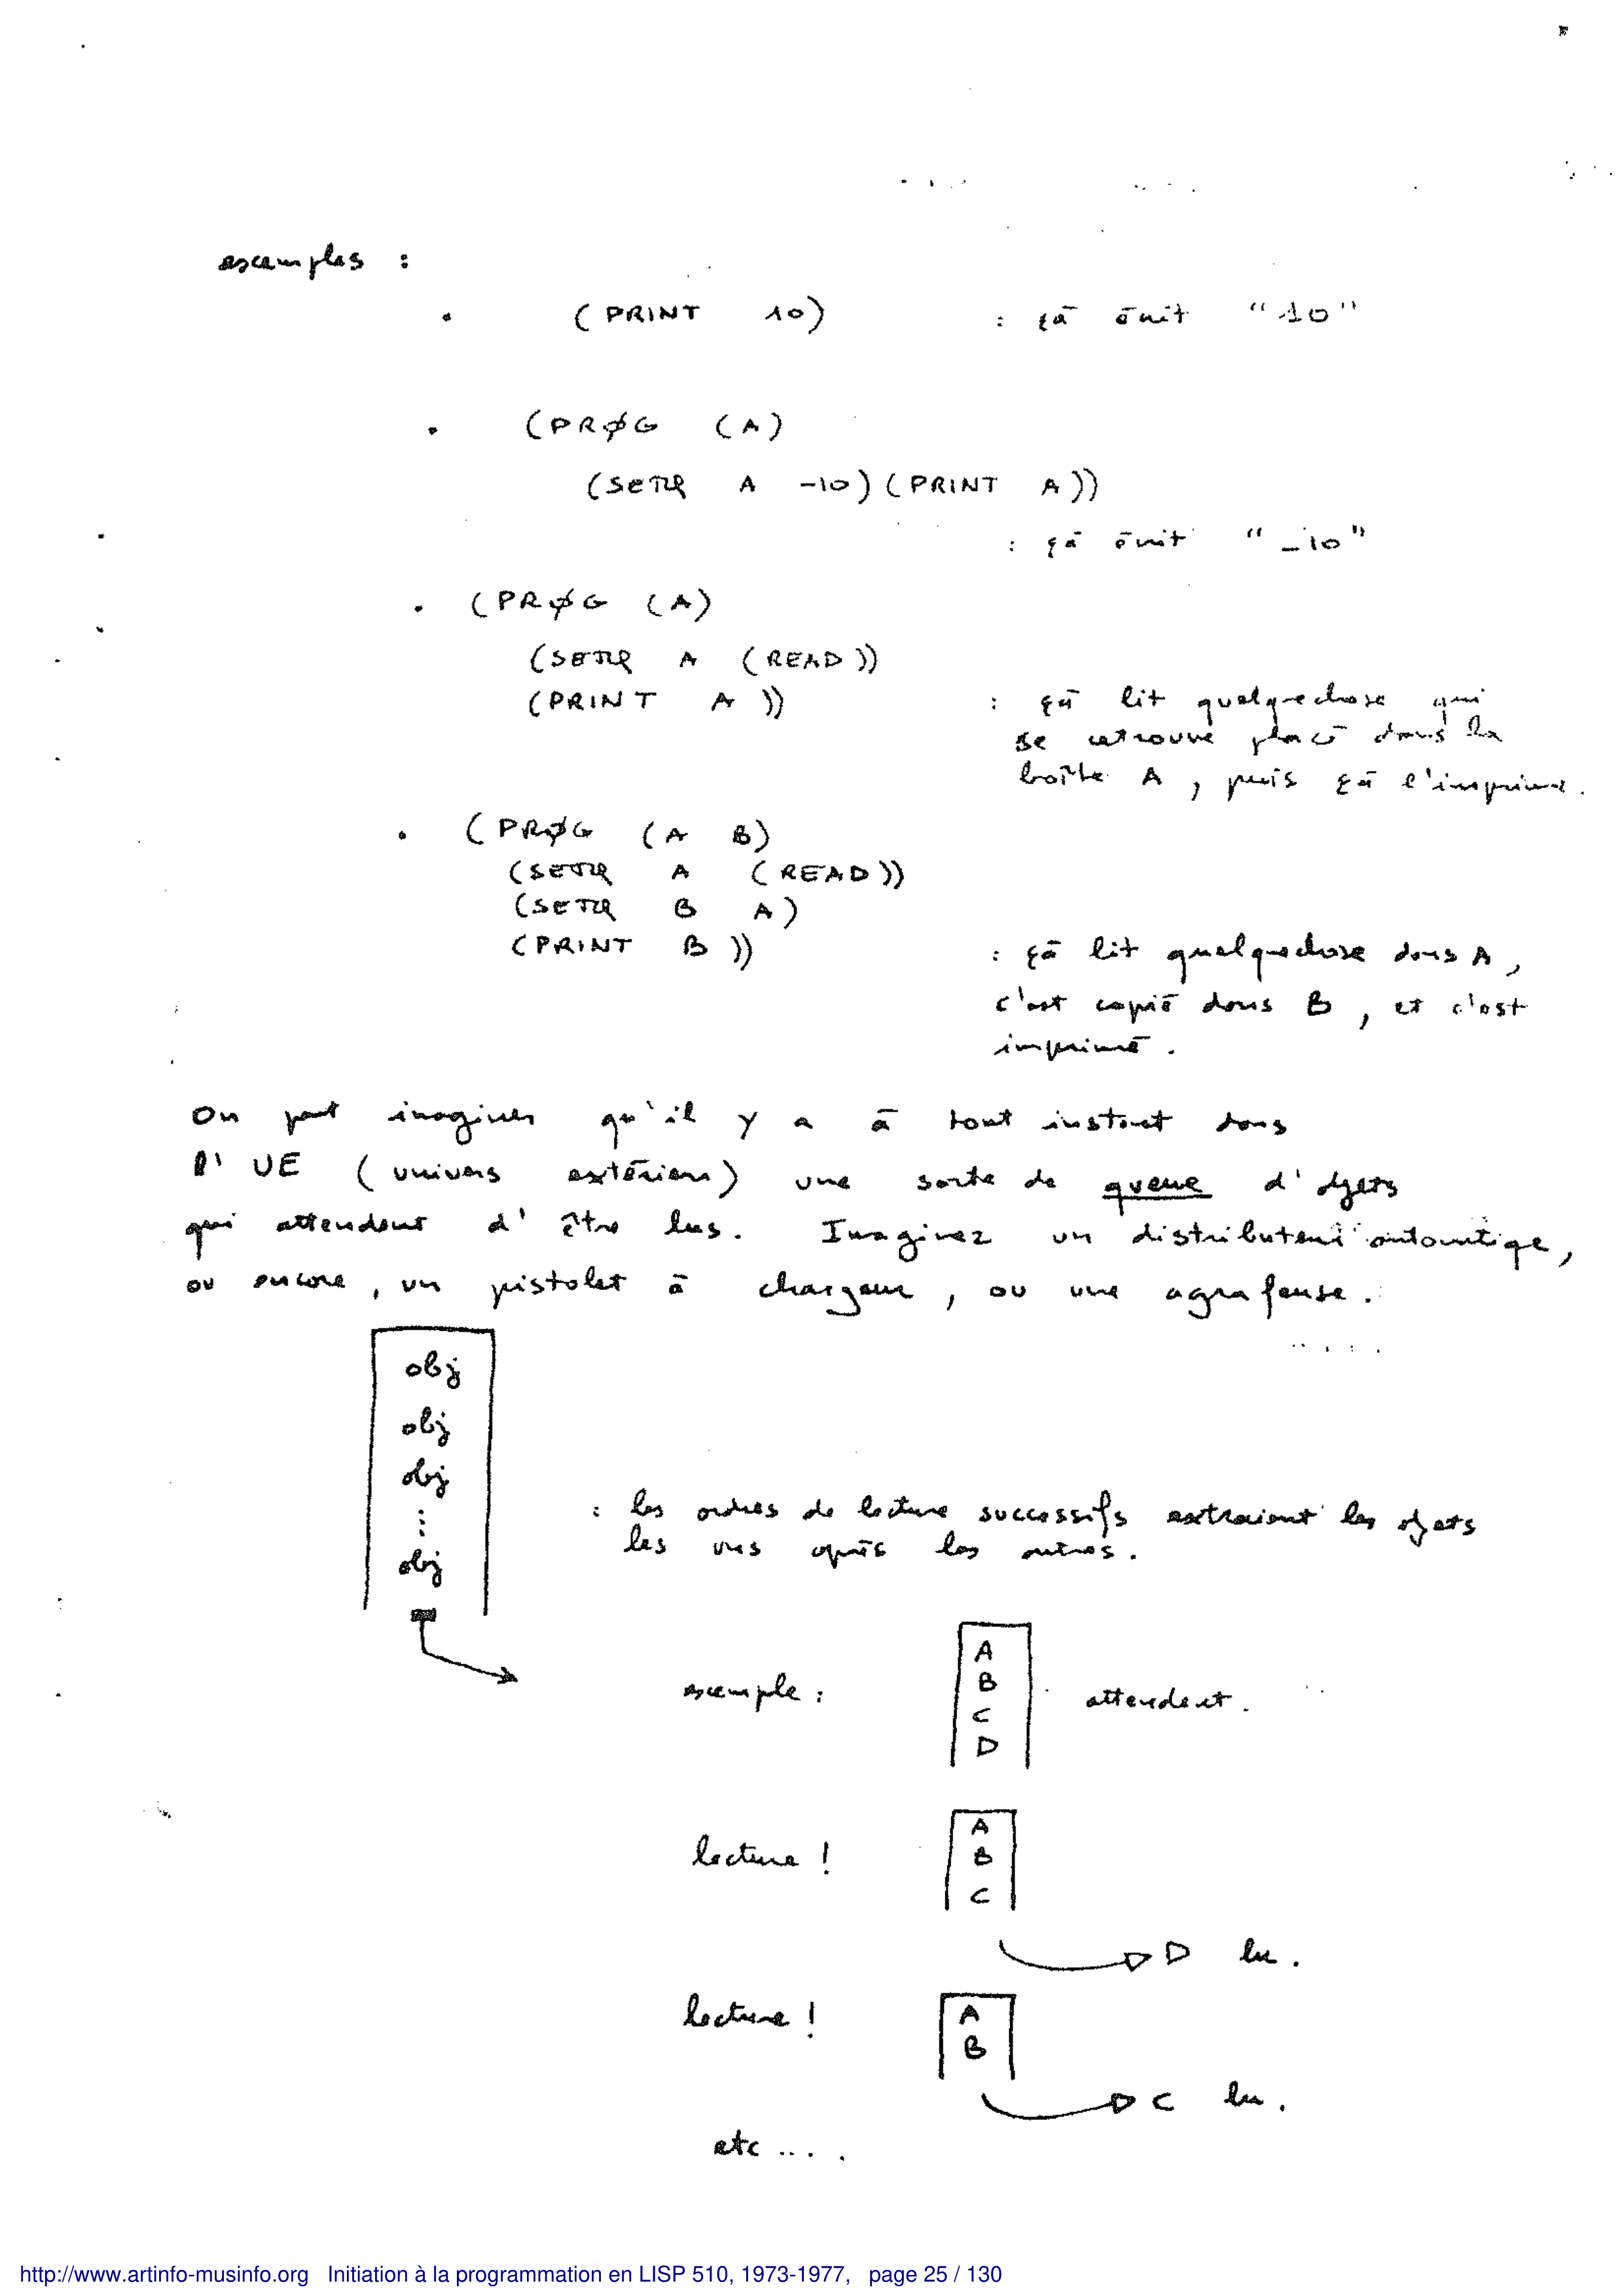 exemples :
. (PRINT 10) : çā ēcrit "10"
. (PRØG (A)
(SETQ A -10) (PRINT A))
: çā ēcrit "-10"
. (PRØG (A)
(SETQ A (READ))
(PRINT A)) : çā lit quelquechose qui
se retrouve placē dans la
boîte A, puis çā l'imprime.
. (PRØG (A B)
(SETQ A (READ))
(SETQ B A)
(PRINT B)) : çā lit quelquechose dans A,
c'est copiē dans B, et c'est
imprimē.
On peut imaginer qu'il y a ā tout instant dans
l'UE (univers extērieur) une sorte de queue d'objets
qui attendent d'être lus. Imaginez un distributeur automatique,
ou encore, un pistolet ā chargeur, ou une agrafeuse.
obj
obj
obj
...
obj
: les ordres de lecture successifs extraient les objets
les uns après les autres.
exemple : A B C D attendent.
lecture ! A B C
D lu.
lecture ! A B
C lu.
etc ....
http://www.artinfo-musinfo.org Initiation à la programmation en LISP 510, 1973-1977, page 25 / 130